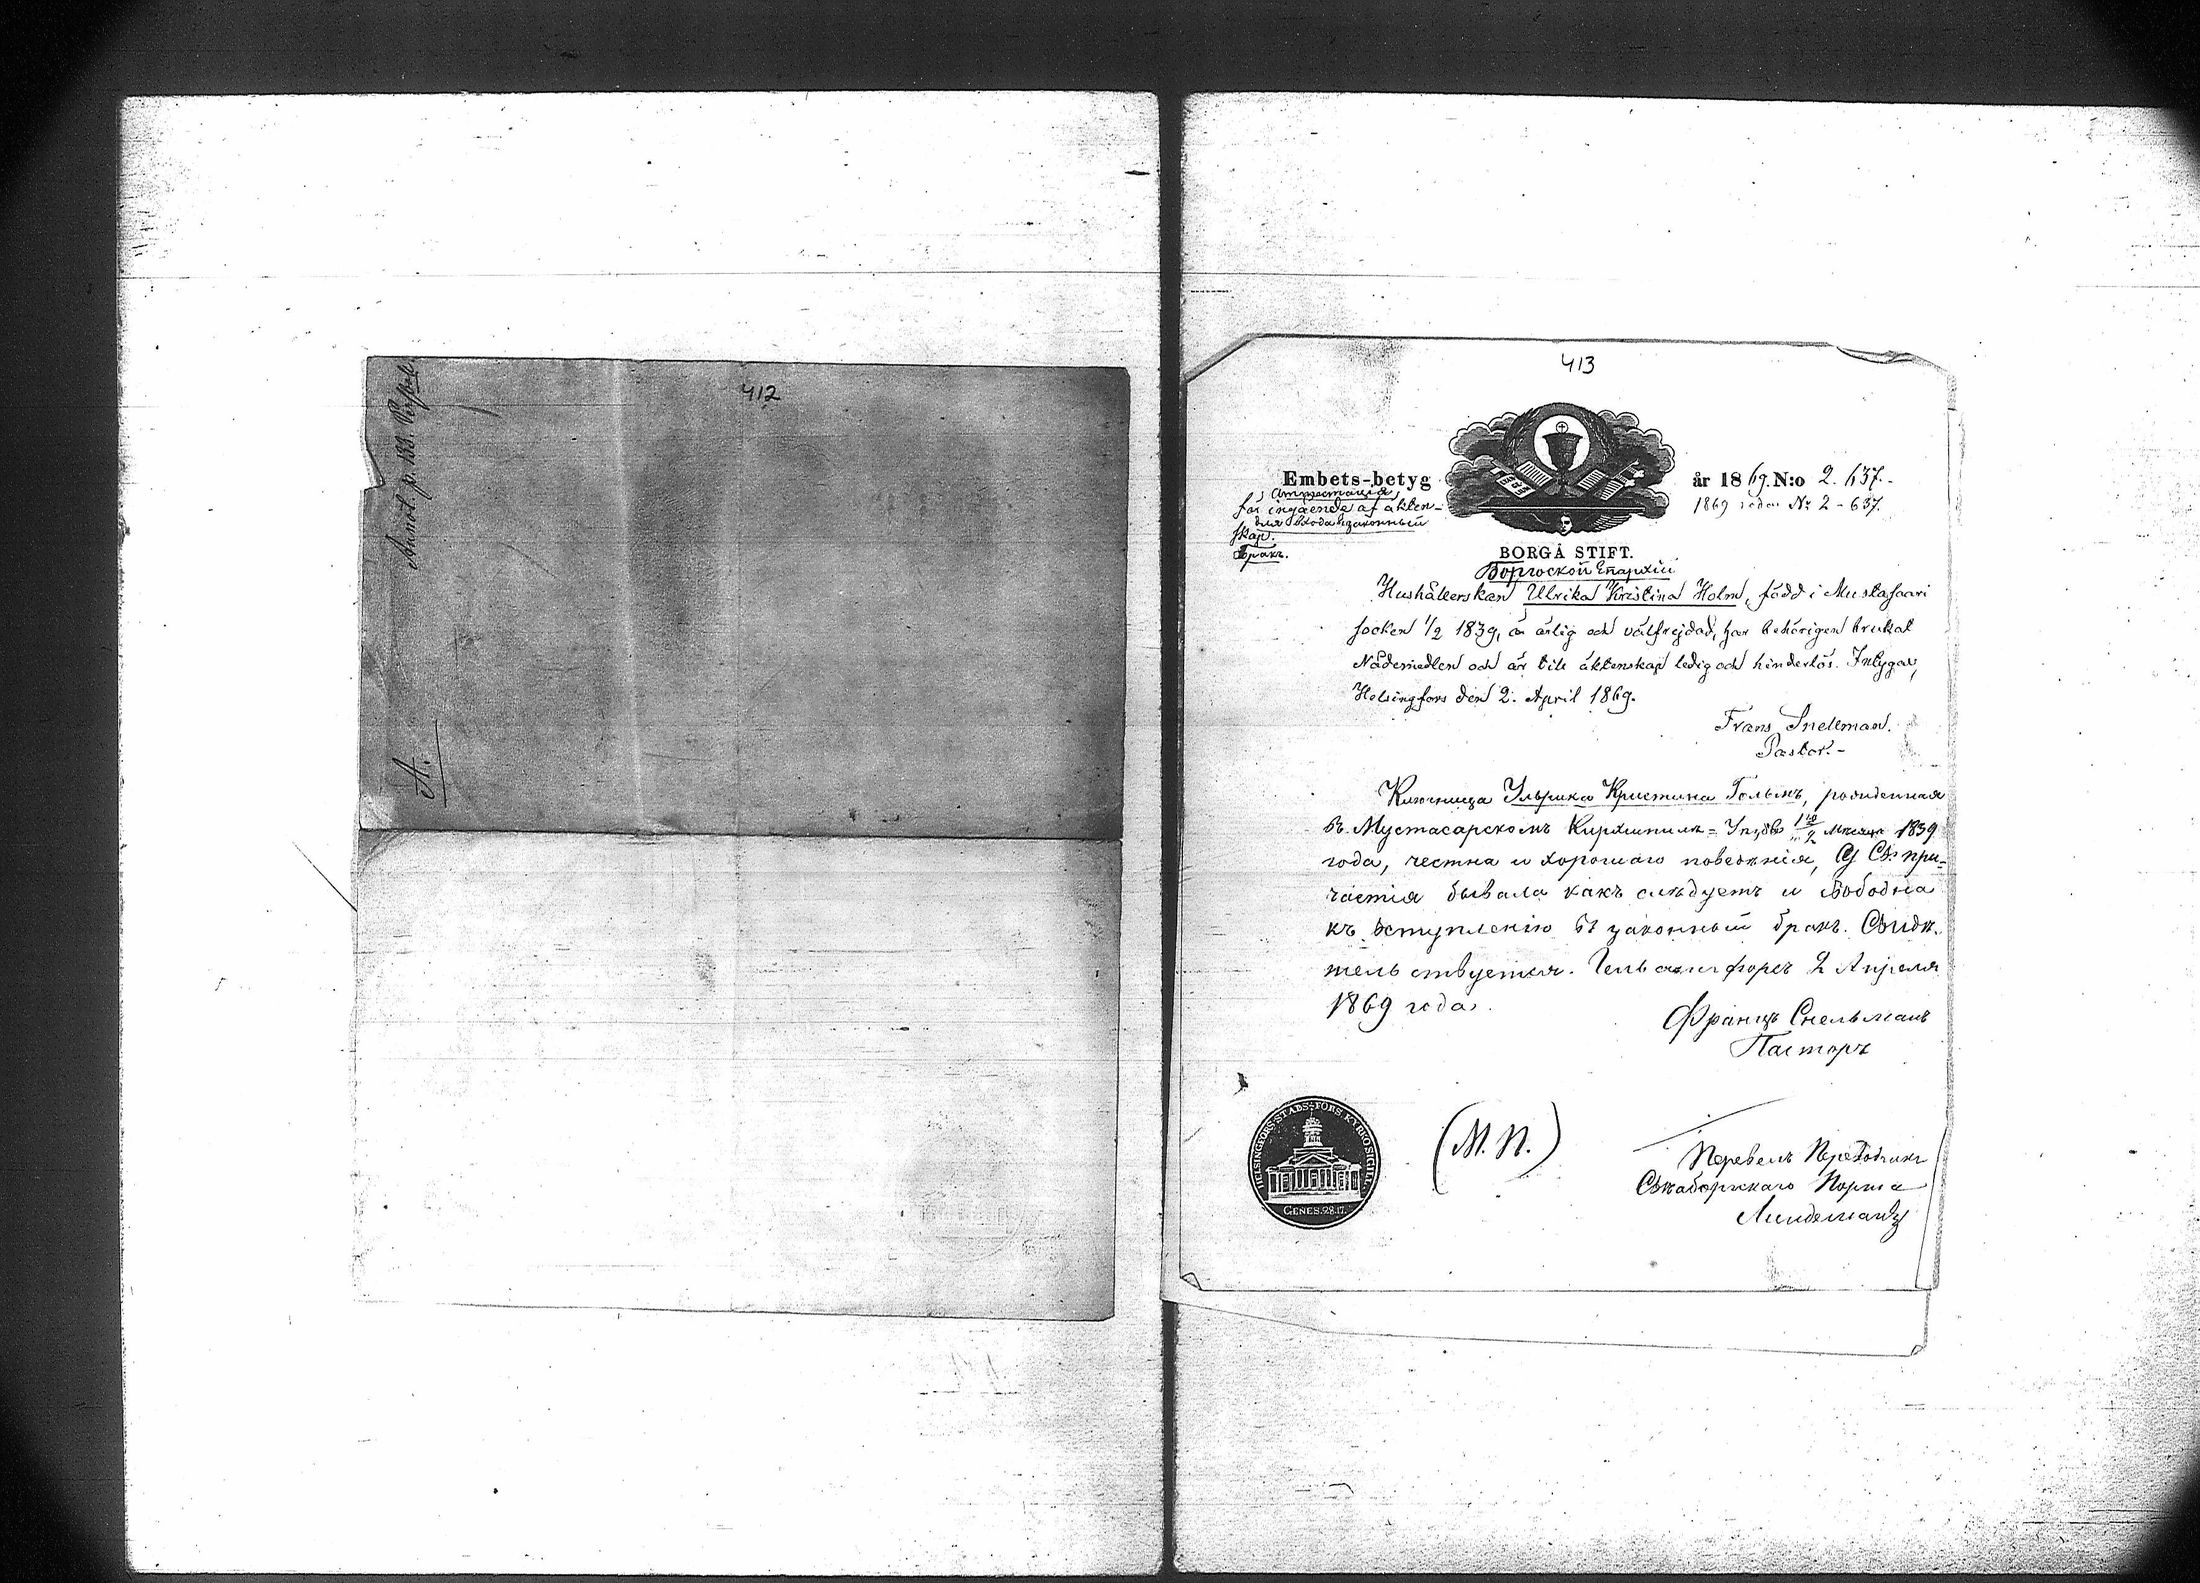 412
Annot. p. 139.
A.
413
Embets-betyg
år 1869. N:o 2. 637.-
Аттестація
1869 года № 2-637.
för ingående af äkten-
для входа в законный
skap.
Бракъ.
BORGÅ STIFT.
Боргоской Епархіи
Hushållerskan Ulrika Kristina Holm, född i Mustasaari
socken 1/2 1839, är ärlig och välfrejdad, har behörigen brukat
Nådemedlen och är till äktenskap ledig och hinderlös. Intygar,
Helsingfors den 2. April 1869.
Frans Snellman.
Pastor.-
Ключница Ульрика Кристина Гольмъ, рожденная
въ Мустасарскомъ Кирхшпилѣ 1/2 мѣсяца 1839
года, честна и хорошаго поведенія, Св. при-
частія бывала какъ слѣдуетъ и свободна
къ вступленію въ законный бракъ. Свидѣ-
тельствуется. Гельсингфорсъ 2 Апреля
1869 года.
Францъ Снельманъ
Пасторъ
HELSINGFORS STADS-FÖRS. KYRKO SIGILL.
GENES. 28.17.
(М. П.)
Перевелъ Переводчикъ
Свеаборгскаго Порта
Линдеманъ